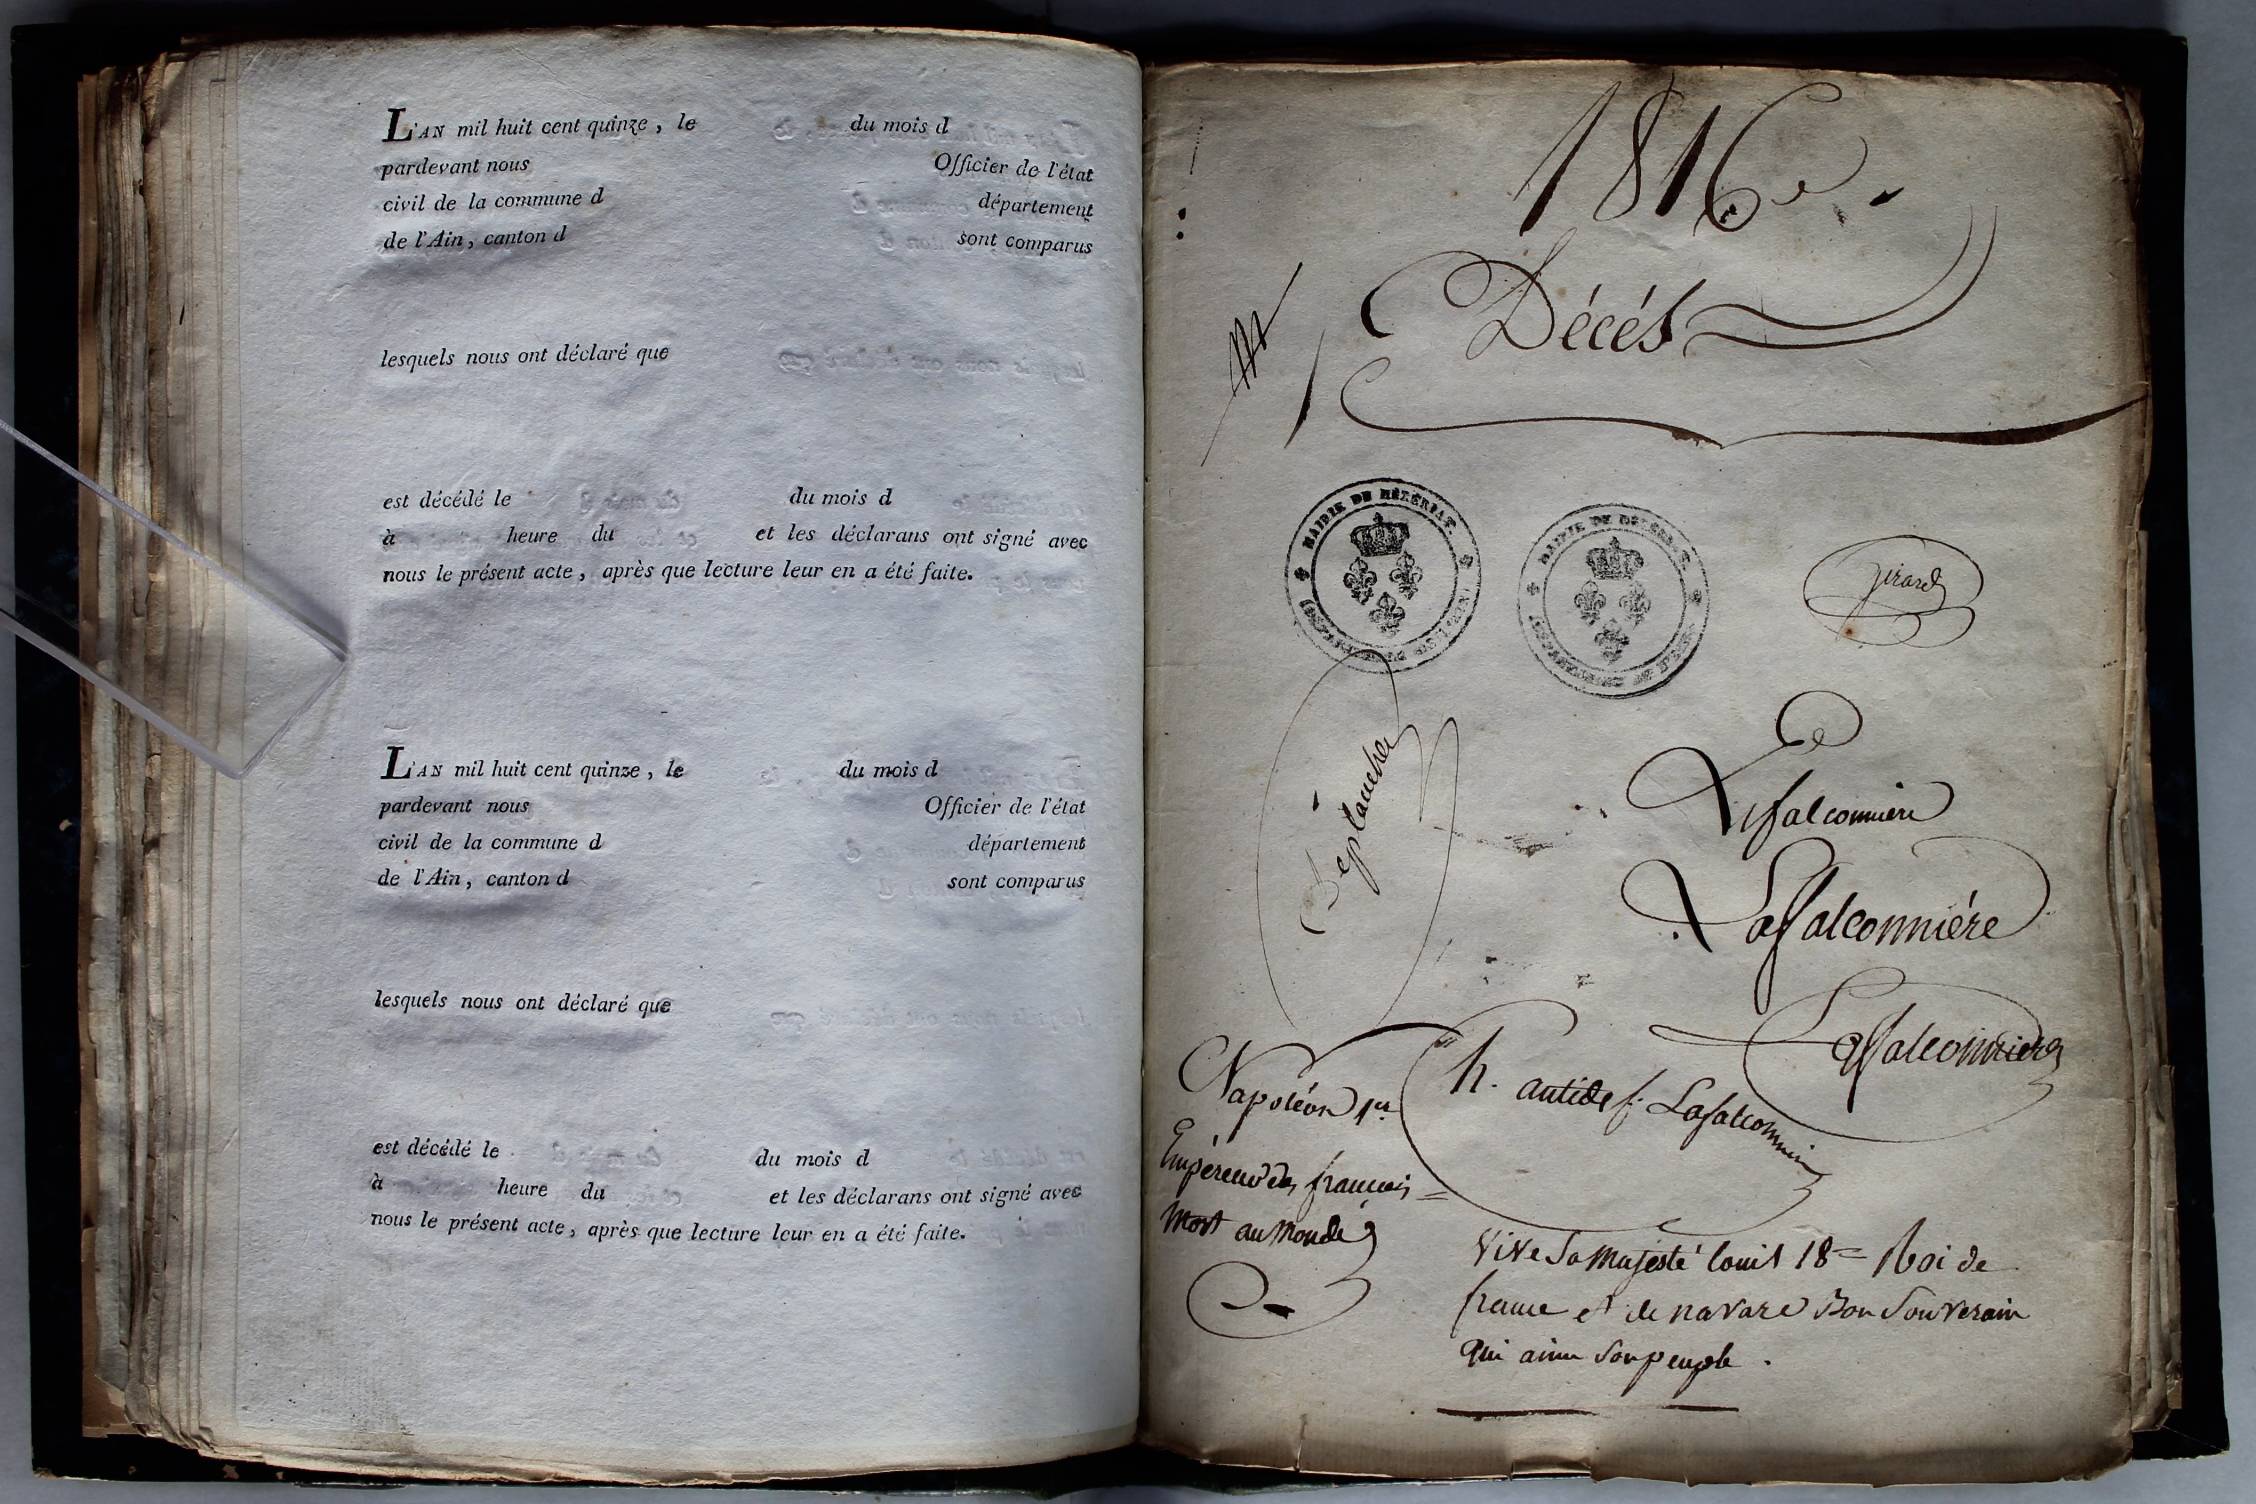 L'AN mil huit cent quinze, le du mois d
pardevant nous Officier de l'état
civil de la commune d département
de l'Ain, canton d sont comparus
lesquels nous ont déclaré que
est décédé le du mois d
à heure du et les déclarans ont signé avec
nous le présent acte, après que lecture leur en a été faite.
L'AN mil huit cent quinze, le du mois d
pardevant nous Officier de l'état
civil de la commune d département
de l'Ain, canton d sont comparus
lesquels nous ont déclaré que
est décédé le du mois d
à heure du et les déclarans ont signé avec
nous le présent acte, après que lecture leur en a été faite.
1816
Décés
MAIRIE DE MÉZÉRIAT.
MAIRIE DE MÉZÉRIAT.
Girard
Deplanches
Lafalconniere
Lafalconniére
Lafalconniere
h. antide f. Lafalconniere
Napoléon 1er
Empéreur des francais =
Mort au Monde
Vive Sa Majesté louis 18= Roi de
france et de navare Bon Souverain
Qui aime son peuple .